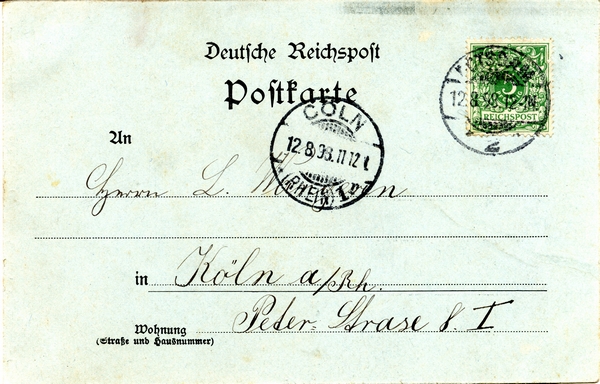 Deutsche Reichspost
Postkarte
5
REICHSPOST
12.8.98.12-1N.
2
CÖLN
12.8.98.11-12
(RHEIN)
An
Herrn L.
in Köln a/Rh.
Peter-Strase 8. I
Wohnung
(Straße und Hausnummer)